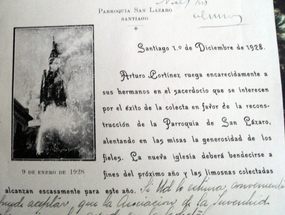 PARROQUIA SAN LÁZARO
SANTIAGO
Santiago 1.º de Diciembre de 1928.
Arturo Cortínez ruega encarecidamente a
sus hermanos en el sacerdocio que se interecen
por el éxito de la colecta en favor de la recons-
trucción de la Parroquia de San Lázaro,
alentando en las misas la generosidad de los
fieles. La nueva iglesia deberá bendecirse a
9 DE ENERO DE 1928
fines del próximo año y las limosnas colectadas
alcanzan escasamente para este año. Si Ud lo estima conveniente
puede aceptar, que la Asociación de la Juventud